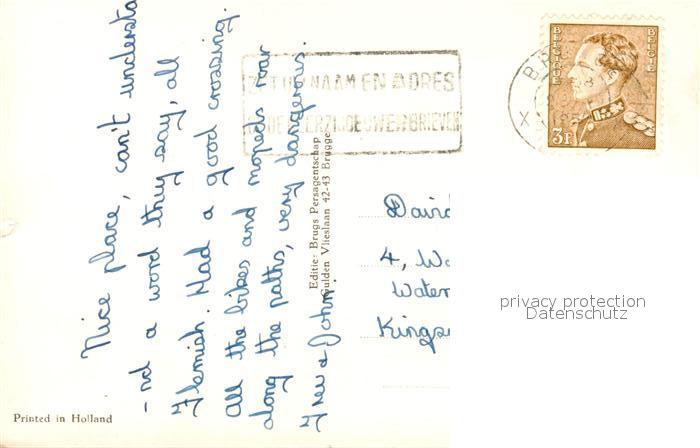 Nice place, can't understa
-nd a word they say, all
Flemish. Had a good crossing.
All the bikes and mopeds roar
along the paths, very dangerous.
& John.
Editie: Brugs Persagentschap
Gulden Vlieslaan 42-43 Brugge
Printed in Holland
NAAM EN ADRES
BELGIQUE
BELGIE
3F
X
David
4,
Water
Kings
privacy protection
Datenschutz